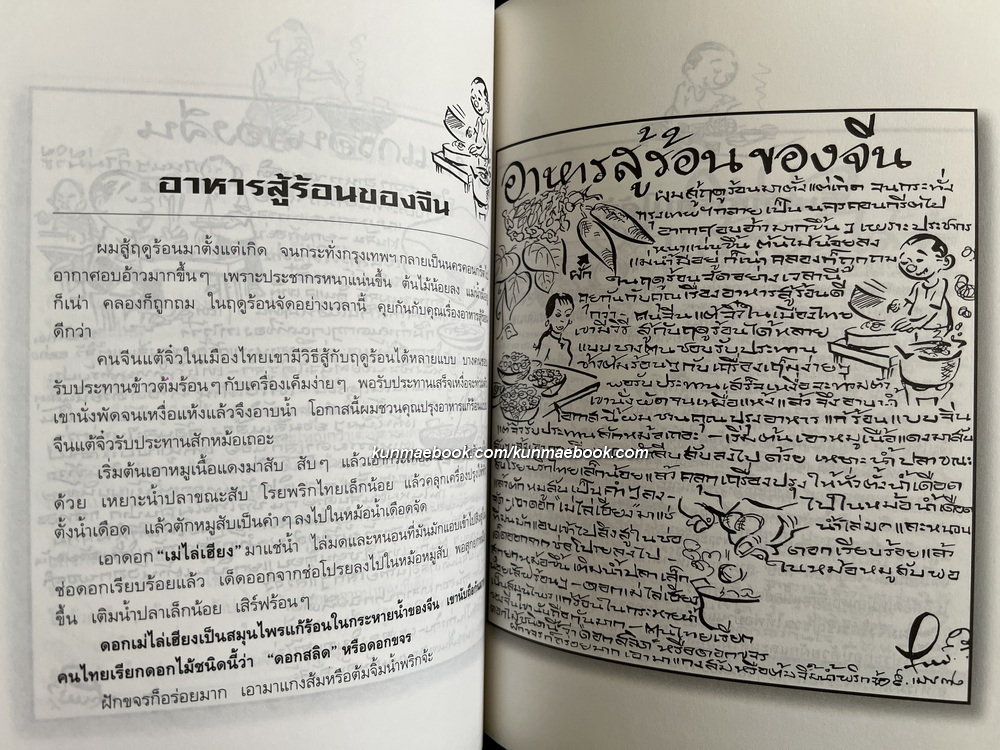 อาหารสู้ร้อนของจีน
ผมสู้ฤดูร้อนมาตั้งแต่เกิด จนกระทั่งกรุงเทพฯ กลายเป็นนครคอนกรีต
อากาศอบอ้าวมากขึ้นๆ เพราะประชากรหนาแน่นขึ้น ต้นไม้น้อยลง แม่น้ำมีอยู่
ก็เน่า คลองก็ถูกถม ในฤดูร้อนจัดอย่างเวลานี้ คุยกันกับคุณเรื่องอาหารสู้ร้อน
ดีกว่า
คนจีนแต้จิ๋วในเมืองไทยเขามีวิธีสู้กับฤดูร้อนได้หลายแบบ บางคนชอบ
รับประทานข้าวต้มร้อนๆ กับเครื่องเค็มง่ายๆ พอรับประทานเสร็จเหงื่อจะท่วมตัว
เขานั่งพัดจนเหงื่อแห้งแล้วจึงอาบน้ำ โอกาสนี้ผมชวนคุณปรุงอาหารแก้ร้อนแบบ
จีนแต้จิ๋วรับประทานสักหม้อเถอะ
เริ่มต้นเอาหมูเนื้อแดงมาสับ สับๆ แล้วเอากระเทียม
ด้วย เหยาะน้ำปลาขณะสับ โรยพริกไทยเล็กน้อย แล้วคลุกเครื่องปรุงให้ทั่ว
ตั้งน้ำเดือด แล้วตักหมูสับเป็นคำๆ ลงไปในหม้อน้ำเดือดจัด
เอาดอก "เมไล่เฮียง" มาแช่น้ำ ไล่มดและหนอนที่มันมักแอบเข้าไป
ช่อดอกเรียบร้อยแล้ว เด็ดออกจากช่อโปรยลงไปในหม้อหมูสับ พอสุก
ขึ้น เติมน้ำปลาเล็กน้อย เสิร์ฟร้อนๆ
ดอกเมไล่เฮียงเป็นสมุนไพรแก้ร้อนในกระหายน้ำของจีน เขานับถือกันมาก
คนไทยเรียกดอกไม้ชนิดนี้ว่า "ดอกสลิด" หรือดอกขจร
ฝักขจรก็อร่อยมาก เอามาแกงส้มหรือต้มจิ้มน้ำพริกจ้ะ
อาหารสู้ร้อนของจีน
ผมสู้ฤดูร้อนมาตั้งแต่เกิด จนกระทั่ง
กรุงเทพฯ กลายเป็นนครคอนกรีตไป
อากาศอบอ้าวมากขึ้นๆ เพราะประชากร
หนาแน่นขึ้น ต้นไม้น้อยลง
แม่น้ำมีอยู่ ก็เน่า คลองก็ถูกถม
ในฤดูร้อนจัดอย่างเวลานี้
คุยกันกับคุณเรื่องอาหารสู้ร้อนดี
กว่า คนจีนแต้จิ๋วในเมืองไทย
เขามีวิธีสู้กับฤดูร้อนได้หลาย
แบบ บางคนชอบรับประทาน
ข้าวต้มร้อนๆ กับเครื่องเค็มง่ายๆ
พอรับประทานเสร็จเหงื่อจะท่วมตัว
เขานั่งพัดจนเหงื่อแห้งแล้วจึงอาบน้ำ
โอกาสนี้ผมชวนคุณปรุงอาหารแก้ร้อนแบบจีน
แต้จิ๋วรับประทานสักหม้อเถอะ - เริ่มต้นเอาหมูเนื้อแดงมาสับ
สับลงไปด้วย เหยาะน้ำปลาขณะ
สับโรยพริกไทยเล็กน้อยแล้วคลุกเครื่องปรุงให้ทั่วตั้งน้ำเดือด
แล้วตักหมูสับเป็นคำๆ ลงไปในหม้อน้ำเดือด
จัด - เอาดอก "เมไล่เฮียง" มาแช่น้ำไล่มดและหนอน
ที่มันมักแอบเข้าไปสิงสู่ในช่อดอกเรียบร้อยแล้ว
เด็ดออกจากช่อโปรยลงไปในหม้อหมูสับ พอ
เติมน้ำปลาเล็ก
น้อยเสิร์ฟร้อนๆ - ดอกเมไล่เฮียง
เป็นสมุนไพรแก้ร้อนในกระหายน้ำ
ของจีนเขานับถือกันมาก คนไทยเรียก
ดอกไม้ชนิดนี้ว่าดอกสลิด หรือดอกขจร
ฝักขจรก็อร่อยมาก เอามาแกงส้มหรือต้มจิ้มน้ำพริกจ้ะ
ฝัก
kunmaebook.com/kunmaebook.com